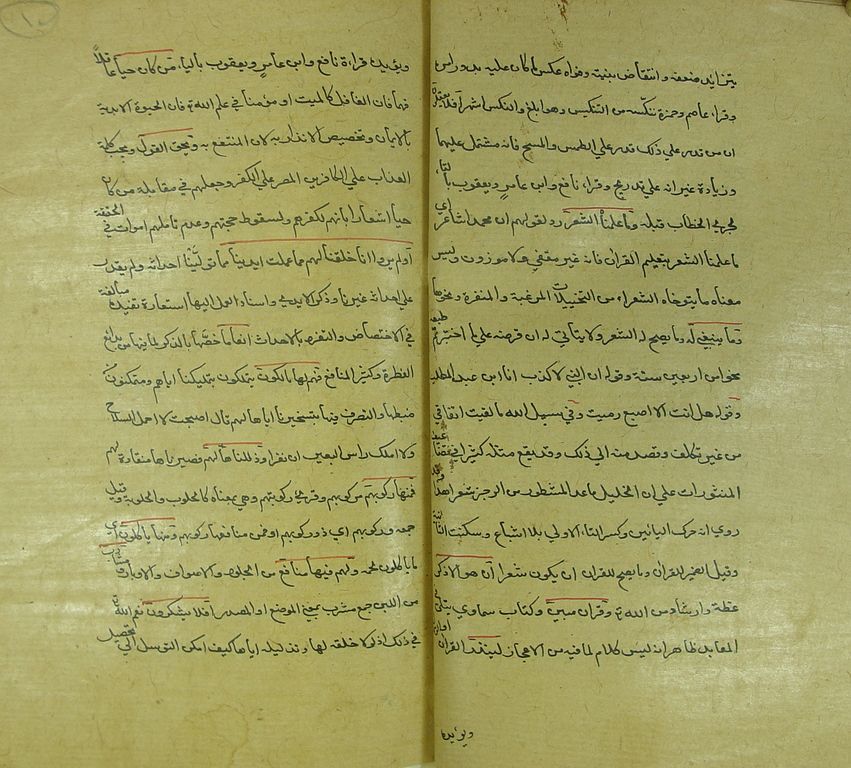 يتزايد ضعفه وانتقاض بنيته وقواه عكس ما كان عليه بدو راس
وقراء عاصم وحمزة ننكسه من التنكيس وهو ابلغ والنكس اشهر أفلا يعقلون
ان من قدر علي ذلك قدر علي الطمس والمسخ فانه مشتمل عليهما
وزيادة غير انه علي تدريج وقراء نافع وابن عامر ويعقوب بالتاء
لجري الخطاب قبله وما علمناه الشعر رد لقولهم ان محمدا شاعر اي
ما علمناه الشعر بتعليم القران فانه غير مقفي ولا موزون وليس
معناه ما يتوخاه الشعراء من التخييلات المرغبة والمنفرة ونحوها
وما ينبغي له وما يصح له الشعر ولا يتاتي له ان قرضه علي ما اختبرتم طبعه
نحوا من اربعين سنة وقوله ان النبي لا كذب انا ابن عبد المطلب
وقوله هل انت الا اصبع دميت وفي سبيل الله ما لقيت اتفاقي
من غير تكلف وقصد منه الي ذلك وقد يقع مثله كثيرا في تضاعيف
المنثورات علي ان الخليل ما عد المشطور من الرجز شعرا هذا وقد
روي انه حرك البائين وكسر التاء الاولي بلا اشباع وسكنت الثانية
وقيل الضمير للقران وما يصح للقران ان يكون شعرا ان هو الا ذكر
عظة وارشاد من الله تع وقران مبين وكتاب سماوي يتلي في
المعابد ظاهر انه ليس كلام لما فيه من الاعجاز لينذر القران او
ويؤيده
١٠
ويؤيده قراءة نافع وابن عامر ويعقوب بالياء من كان حيا عاقلا
فهما فان الغافل كالميت او مؤمنا في علم الله تع فان الحيوة الابدية
بالايمان وتخصيص الانذار به لانه المنتفع به ويحق القول وتجب كلمة
العذاب علي الكافرين المصر علي الكفر وجعلهم في مقابلة من كان
حيا اشعارا بانهم لكفرهم ولسقوط حجتهم وعدم تاملهم اموات في الحقيقة
أولم يروا انا خلقنا لهم مما عملت ايدينا مما تولينا احداثه ولم يقدر
علي احداثه غيرنا وذكر الايدي واسناد العمل اليها استعارة تفيد مبالغة
في الاختصاص والتفرد بالاحداث انعاما خصها بالذكر لما فيها من بدائع
الفطرة وكثرة المنافع فهم لها مالكون يتملكون بتمليكنا اياهم ومتمكنون من
ضبطها والتصرف فيها بتسخيرنا اياها لهم قال اصبحت لا احمل السلاح
ولا املك راس البعير ان نفرا وذللناها لهم فصيرناها منقادة لهم
فمنها ركوبهم مركوبهم وقرئ ركوبتهم وهي بمعناه كالحلوب والحلوبة وقيل
جمعه وركوبهم اي ذو ركوبهم او فمن منافعها ركوبهم ومنها ياكلون اي
ما ياكلون لحمه ولهم فيها منافع من الجلود والاصواف والاوبار ومشارب
من اللبن جمع مشرب بمعني الموضع او المصدر افلا يشكرون نعم الله تع
في ذلك اذ لولا خلقه لها وتذليله اياها كيف امكن التوسل الي تحصيل